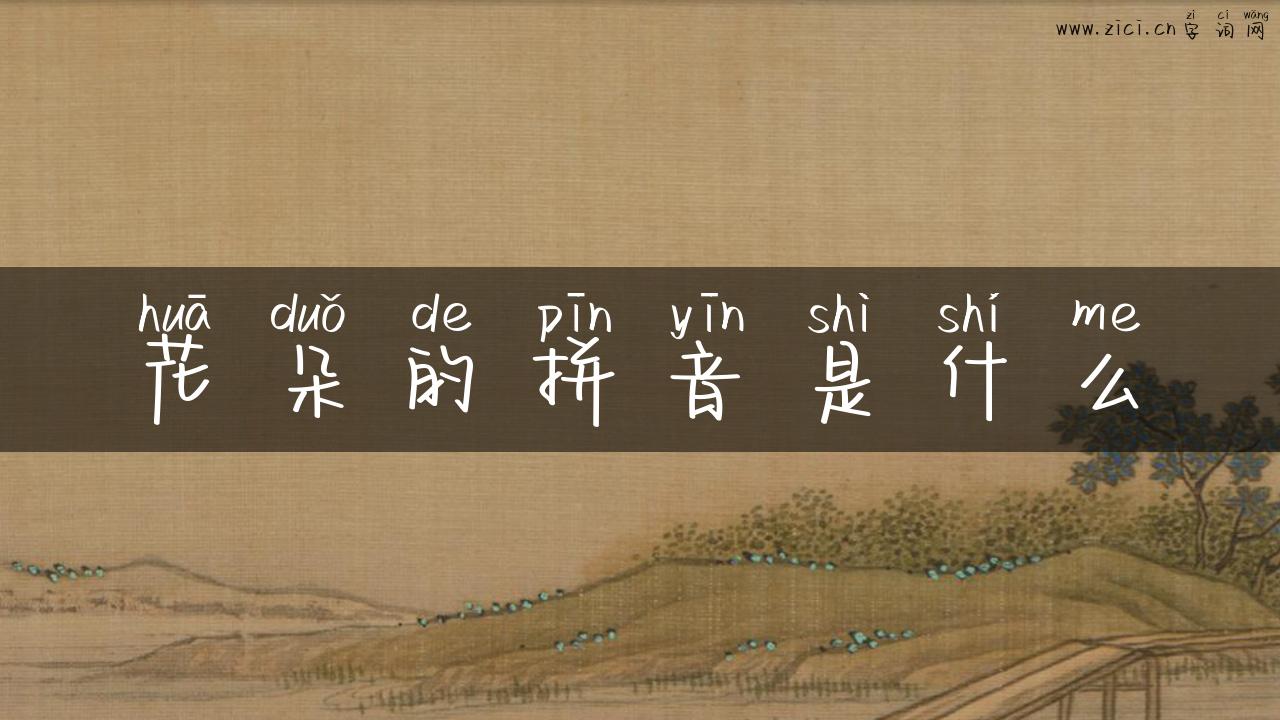 zì cí wǎng
www.zici.cn字词网
huā duǒ de pīn yīn shì shí me
花朵的拼音是什么